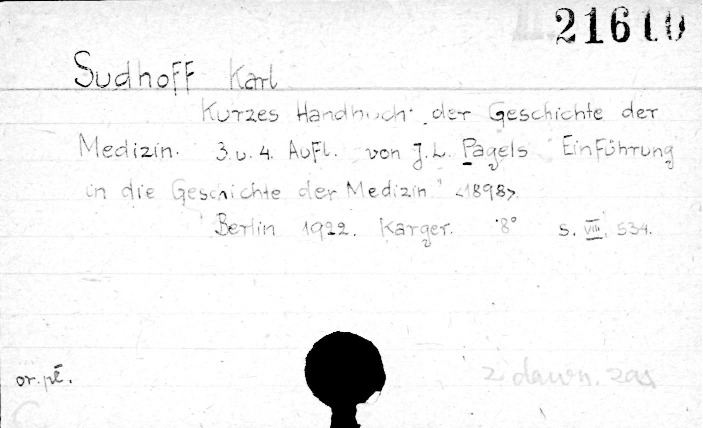 21610
Sudhoff Karl
Kurzes Handbuch der Geschichte der
Medizin. 3. u. 4. Aufl. von J. L. Pagels "Einführung
in die Geschichte der Medizin" <1898>.
Berlin 1922. Karger. 8° S. VIII, 534.
or. pł.
z dawn. zas